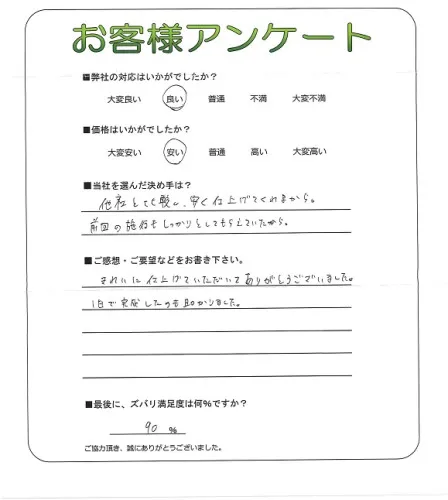 お客様アンケート
■弊社の対応はいかがでしたか?
大変良い 良い 普通 不満 大変不満
■価格はいかがでしたか?
大変安い 安い 普通 高い 大変高い
■当社を選んだ決め手は?
他社とても、安く仕上げてくれるから。
前回の施工もしっかりとしてもらえていたから。
■ご感想・ご要望などをお書き下さい。
きれいに仕上げていただいてありがとうございました。
1日で完成したのも助かりました。
■最後に、ズバリ満足度は何%ですか?
90 %
ご協力頂き、誠にありがとうございました。